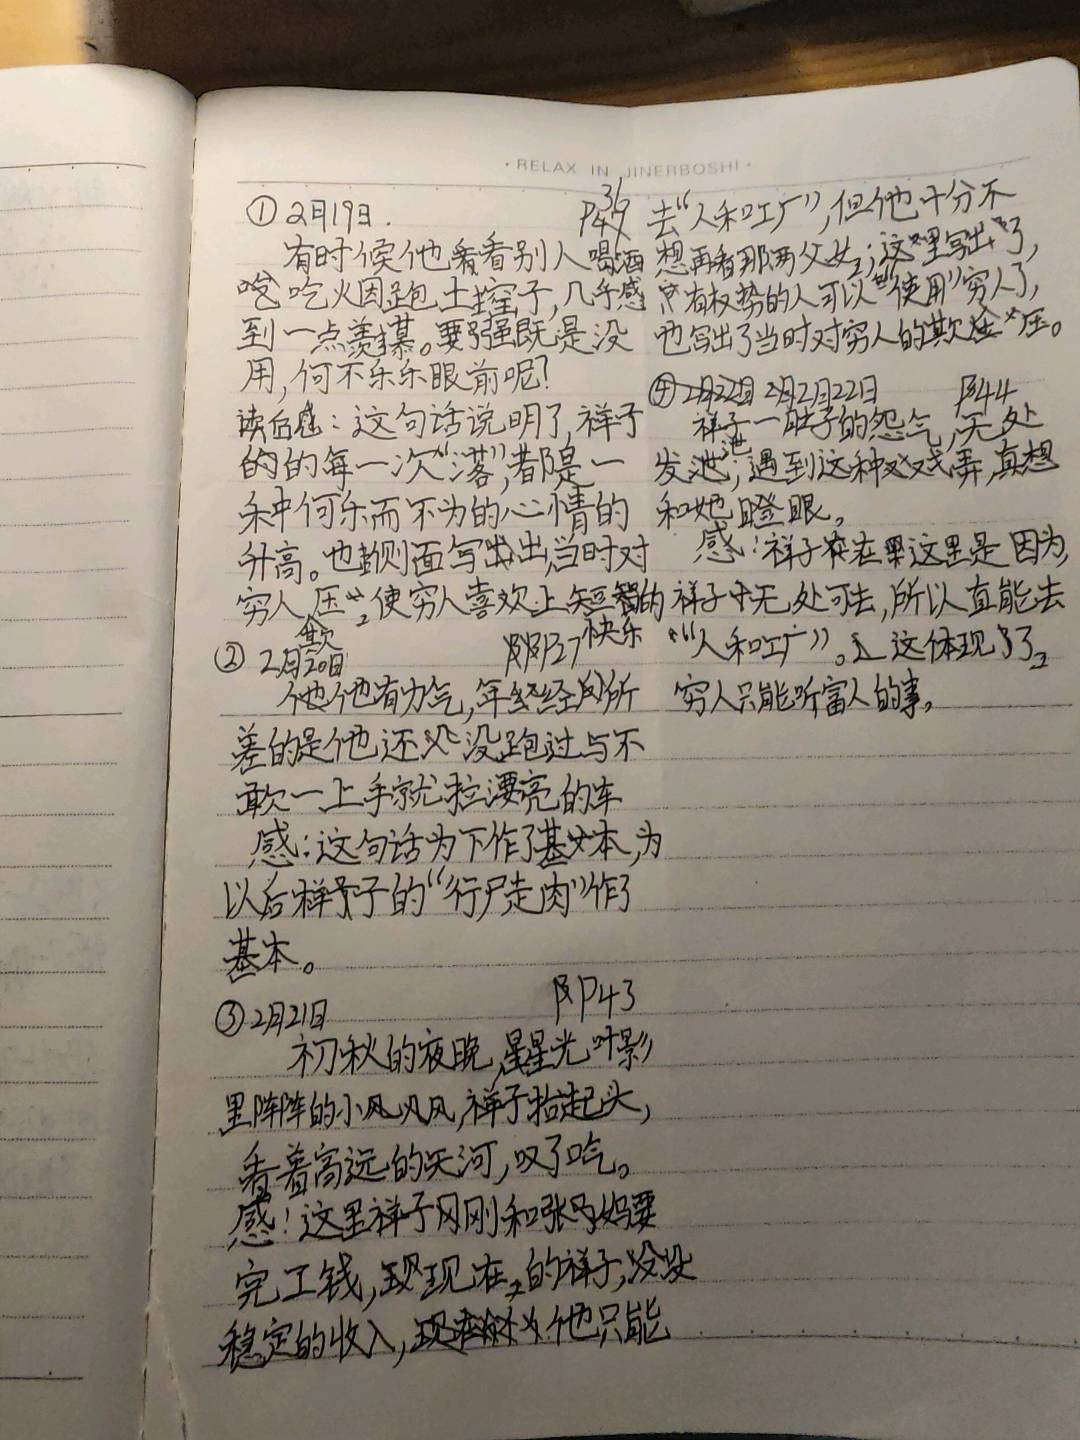 · RELAX IN JINERBOSHI ·
① 2月19日. P36
有时候他看看别人喝酒
吃烟跑土窑子,几乎感
到一点羡慕。要强既是没
用,何不乐乐眼前呢?
读后感:这句话说明了,祥子
的的每一次“落”,都是一
种何乐而不为的心情的
升高。也侧面写出,当时对
穷人欺压,使穷人喜欢上短暂的
快乐
② 2月20日 P37
他有力气,年轻所
差的是他还没跑过与不
敢一上手就拉漂亮的车
感:这句话为下作了基本,为
以后祥子的“行尸走肉”作了
基本。
③ 2月21日 P43
初秋的夜晚,星星光叶影
里阵阵的小风,祥子抬起头,
看着高远的天河,叹了吃。
感!这里祥子刚刚和张妈要
完工钱,现在的祥子,没
稳定的收入,他只能
去“人和工厂”,但他十分不
想再看那两父女;这里写出了,
只有权势的人可以“使用”穷人了,
也写出了当时对穷人的欺压。
④ 2月22日 P44
祥子一肚子的怨气,无处
发泄;遇到这种戏弄,真想
和她瞪眼。
感:祥子在这里是因为,
祥子无处可去,所以直能去
“人和工厂”。这体现了
穷人只能听富人的事。